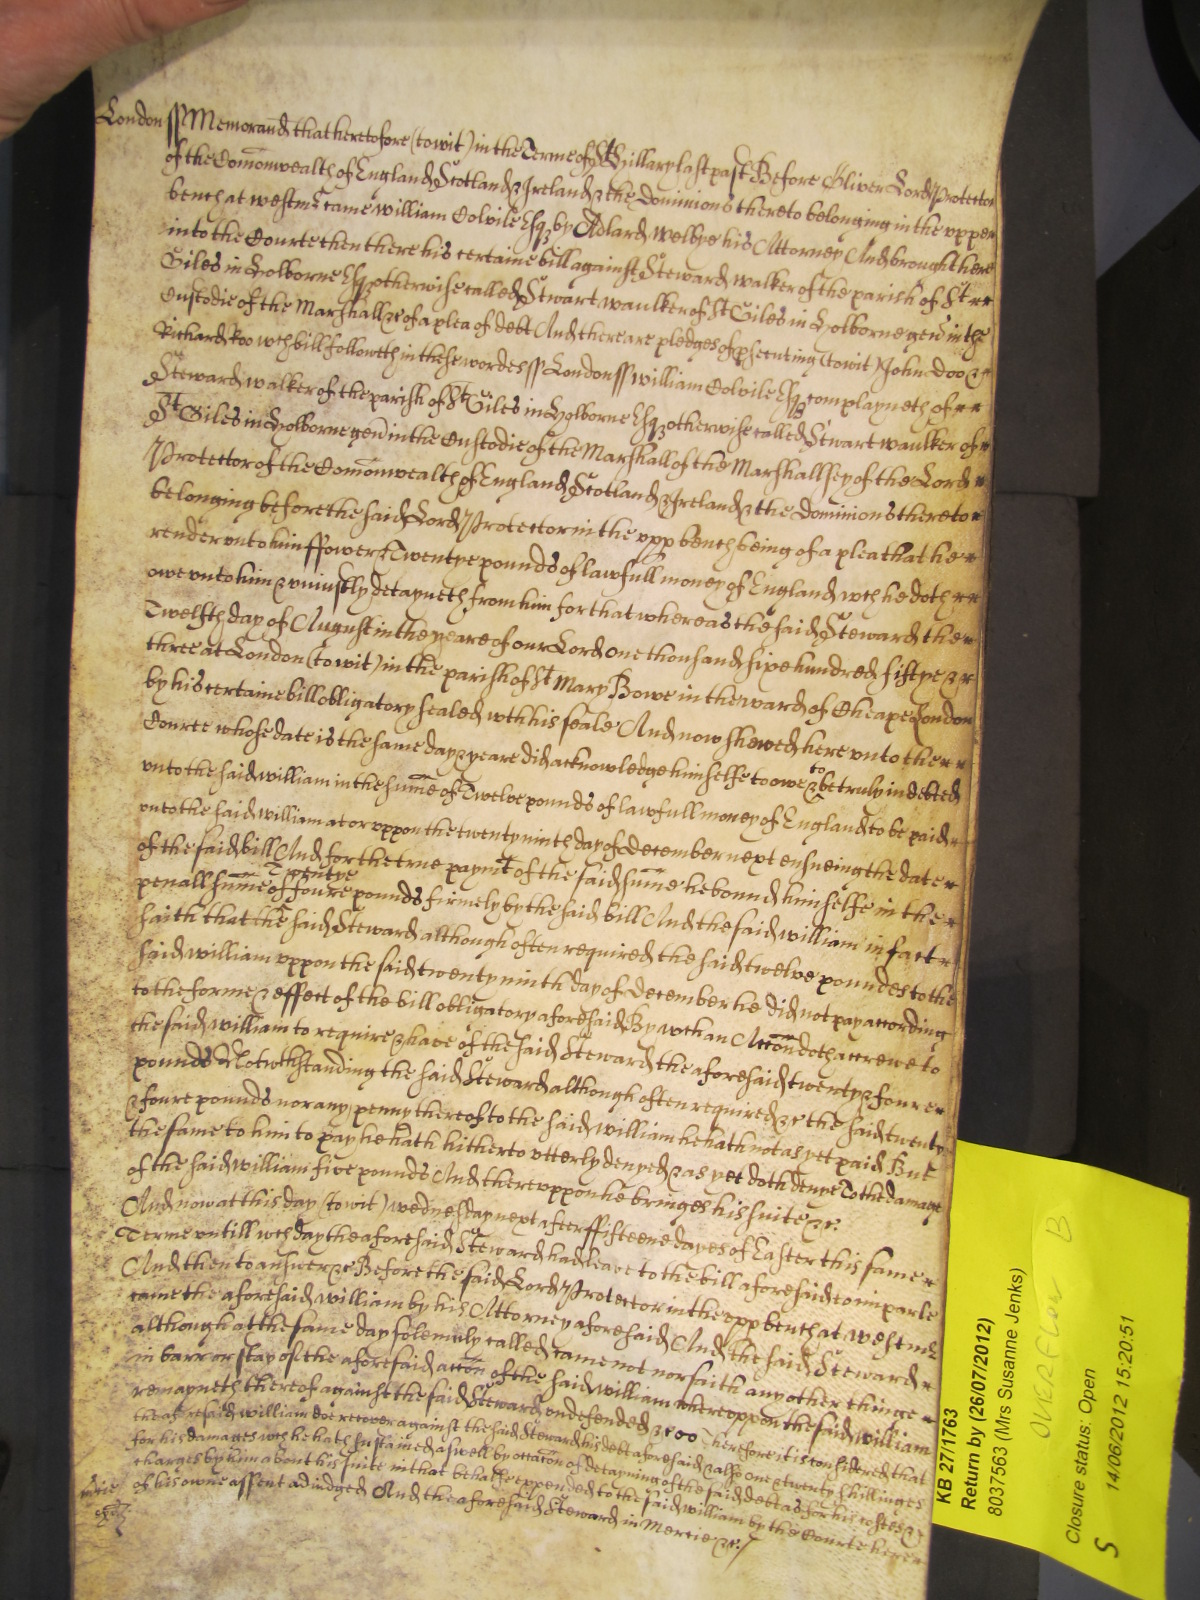 London ss Memorand that heretofore (to wit) in the Terme of St Hillary last past Before Oliver Lord Protector
of the Comonwealth of England Scotland & Ireland & the Dominions thereto belonging in the upper
bench at westmr came William Colvile Esq by Adlard Welbye his Attorney And brought here
into the Courte then there his certaine bill against Steward walker of the parish of St
Giles in Holborne Esq otherwise called Stwart waulker of St Giles in Holborne gen in the
Custodie of the Marshall &c of a plea of debt And there are pledges of psecuting (to wit) John Doo &
Richard Roo wch bill followeth in these wordes ss London ss William Colvile Esq complayneth of
Steward walker of the parish of St Giles in Holborne Esq otherwise called Stwart waulker of
St Giles in Holborne gen in the Custodie of the Marshall of the Marshallsey of the Lord
Protector of the Comonwealth of England Scotland & Ireland & the Dominions thereto
belonging before the said Lord Protector in the upp bench being of a plea that he
render unto him ffower & Twentye pounds of lawfull money of England wch he doth
owe unto him & uniustly detayneth from him for that whereas the said Steward the
Twelfth day of August in the yeare of our Lord one thousand sixe hundred fiftye &
three at London (to wit) in the parish of St Mary Bowe in the ward of Cheape London
by his certaine bill obligatory sealed wth his seale And now shewed here unto the
Courte whose date is the same day & yeare did acknowledge himselfe to owe & to be truly indebted
unto the said William in the sume of Twelve pounds of lawfull money of England to be paid
unto the said William at or uppon the twenty ninth day of December next ensueing the date
of the said bill And for the true paymt of the said sume he bound himselfe in the
penall sume of Twentye foure pounds firmely by the said bill And the said William in fact
saith that the said Steward although often required the said twelve poundes to the
said William uppon the said twenty ninth day of December he did not pay according
to the forme & effect of the bill obligatory aforesaid By wch an Accon doth accrewe to
the said William to require & have of the said Steward the aforesaid twenty & foure
pounds Notwthstanding the said Steward although often required &c the said twenty
& foure pounds nor any penny thereof to the said William he hath not as yet paid But
the same to him to pay he hath hitherto utterly denyed & as yet doth denye To the damage
of the said William five pounds And thereuppon he bringes his suite &c.
And now at this day (to wit) wednesday next after ffifteene dayes of Easter this same
Terme untill wch day the aforesaid Steward had leave to the bill aforesaid to imparle
And then to answer &c Before the said Lord Protector in the upp bench at westmr
came the aforesaid William by his Attorney aforesaid And the said Steward
although at the same day solemnly called came not nor saith any other thinge
in barr or stay of the aforesaid accon of the said William whereuppon the said William
remayneth thereof against the said Steward undefended &c Therefore it is considered that
the aforesaid William doe recover against the said Steward his debt aforesaid & also one & twenty shillinges
for his damages wch he hath sustained aswell by occacon of detayning of the said debt as for his costes &
charges by him about his suite in that behalfe expended to the said William by the Courte here
of his owne assent adiudged And the aforesaid Steward in Mercie &c.
KB 27/1763
Return by (26/07/2012)
8037563 (Mrs Susanne Jenks)
OVERFLOW B
Closure status: Open
S 14/06/2012 15:20:51